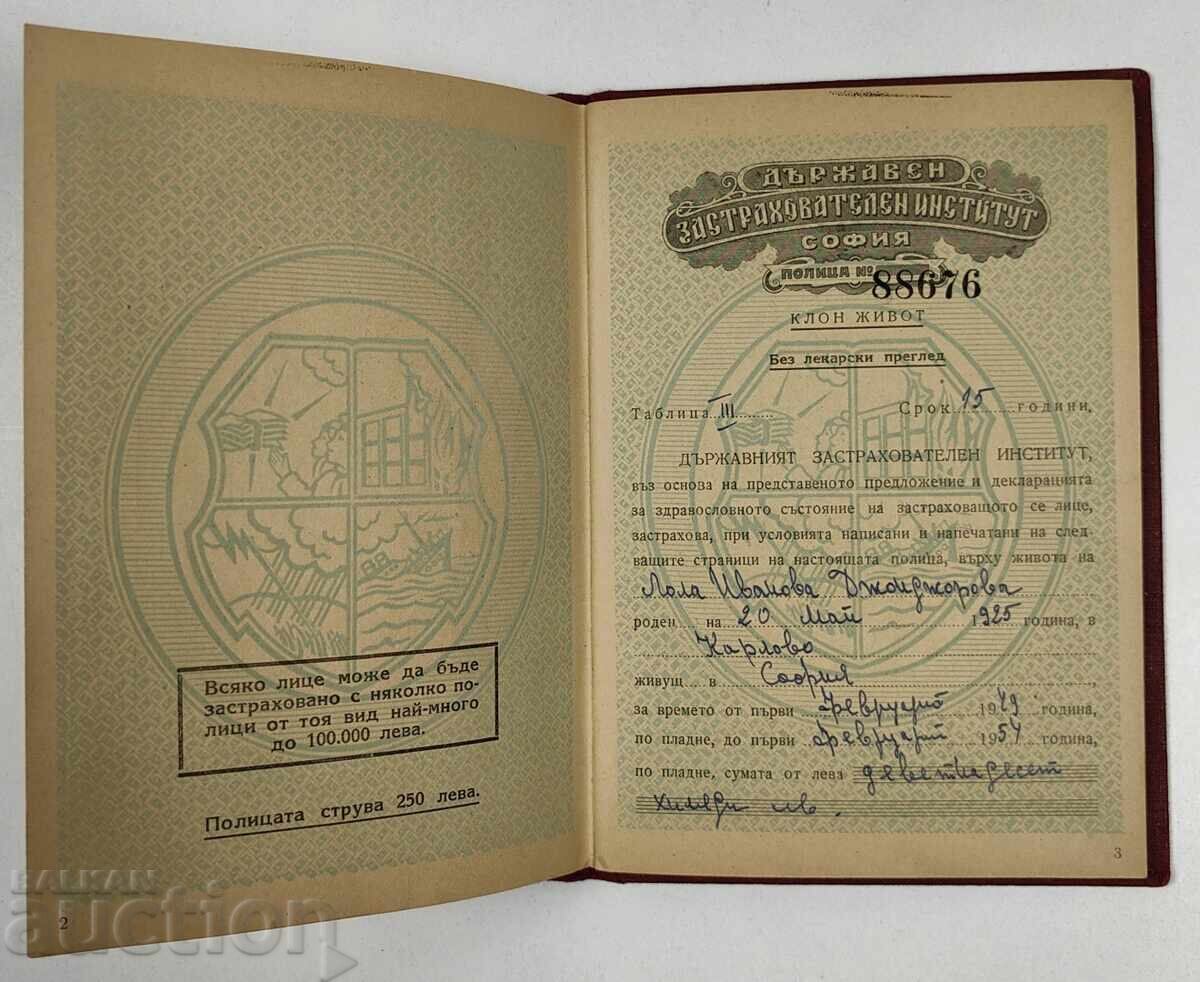 Всяко лице може да бъде
застраховано с няколко по-
лици от тоя вид най-много
до 100.000 лева.
Полицата струва 250 лева.
2
BALKAN
auction
ДЪРЖАВЕН
ЗАСТРАХОВАТЕЛЕН ИНСТИТУТ
СОФИЯ
ПОЛИЦА № 88676
КЛОН ЖИВОТ
Без лекарски преглед
Таблица III Срок 15 години,
ДЪРЖАВНИЯТ ЗАСТРАХОВАТЕЛЕН ИНСТИТУТ,
въз основа на представеното предложение и декларацията
за здравословното състояние на застраховащото се лице,
застрахова, при условията написани и напечатани на след-
ващите страници на настоящата полица, върху живота на
Лола Иванова Джонджорова
роден на 20 Май 1925 година, в
Карлово
живущ в София,
за времето от първи Февруарий 1949 година,
по пладне, до първи Февруарий 1954 година,
по пладне, сумата от лева деветнадесет
хиляди лв.
3